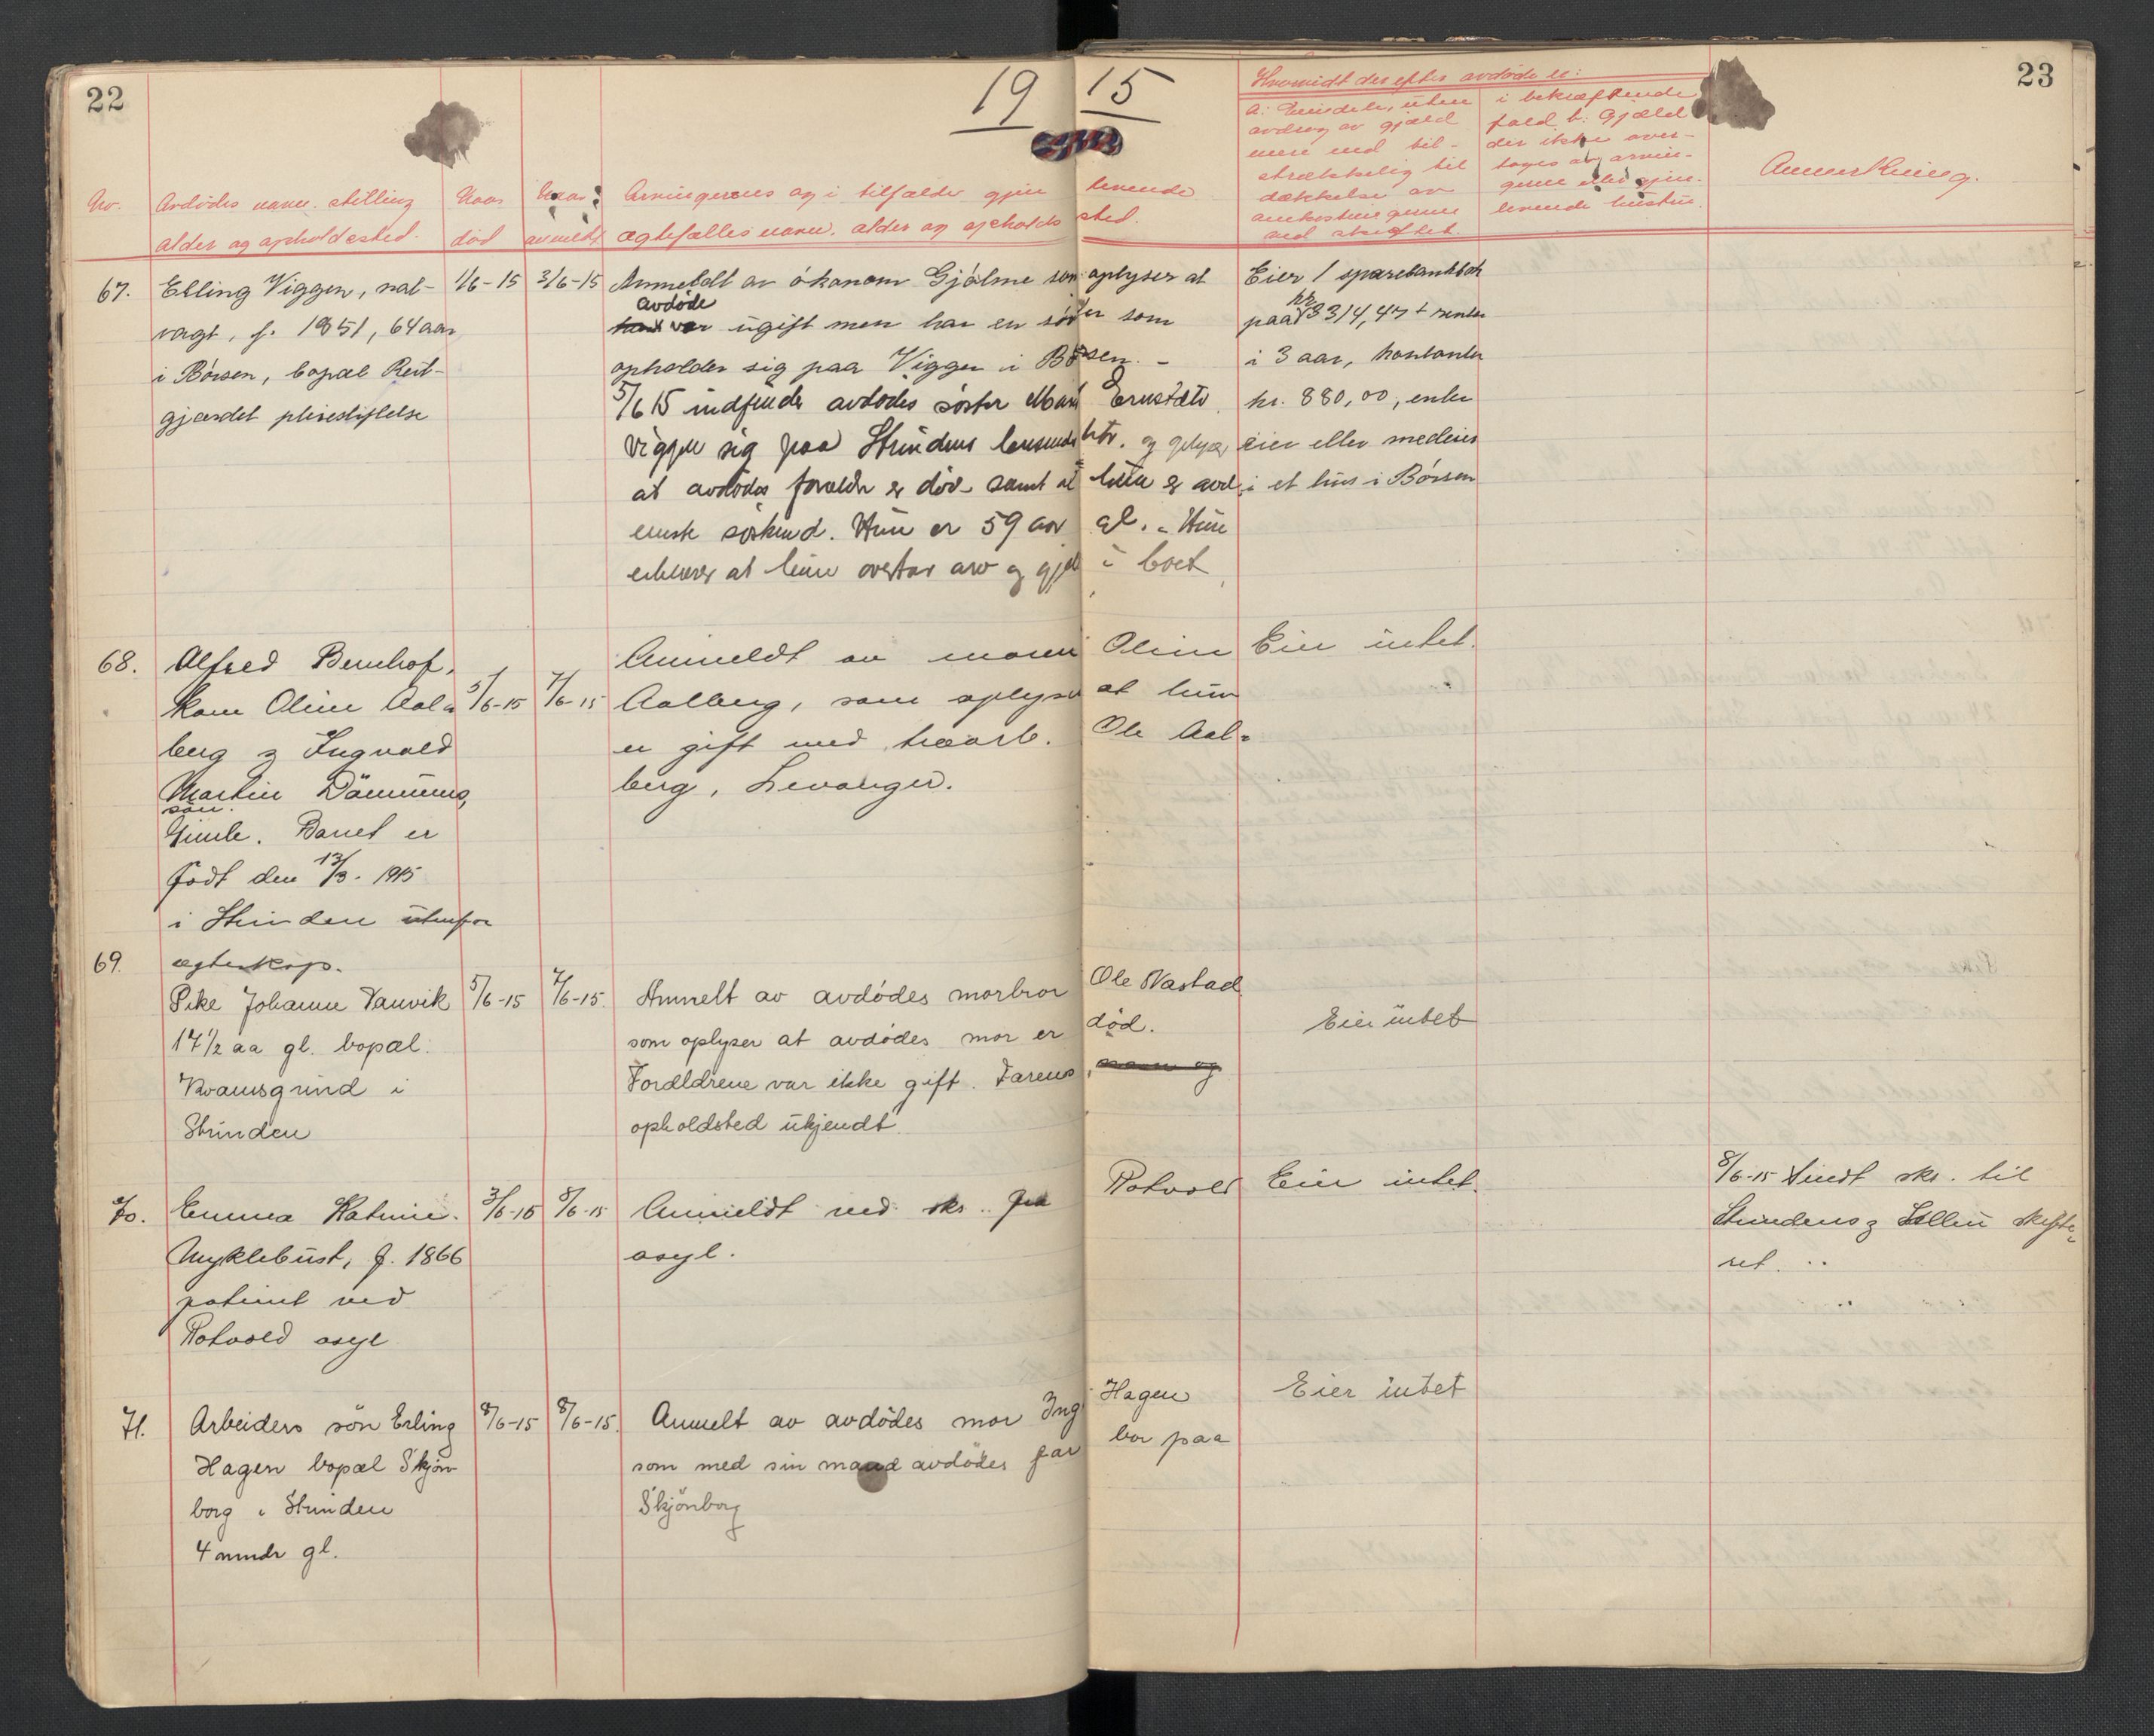 22
23
19 15
Hvorvidt der efter avdøde er:
a: Eiendele, uten
avdrag av gjæld
mere end til-
strækkelig til
dækkelse av
omkostningerne
ved skiftet.
i bekræftende
fald b: Gjæld
der ikke over-
tages av arvin-
gerne eller gjen-
levende hustru.
Anmerkning.
No.
Avdødes navn, stilling
alder og opholdssted.
Naar
død
Naar
anmeldt
Arvingernes og i tilfælde gjenlevende
ægtefælles navn, alder og opholdssted.
67.
Elling Viggen, nat-
vagt, f. 1851, 64 aar
i Börsen, bopæl Reit-
gjærdet pleiestiftelse
1/6-15
3/6-15
Anmeldt av ökonom Gjölme som oplyser at
avdøde
var ugift men har en söster som
opholder sig paa Viggen i Börsen. -
5/6 15 indfinder avdødes söster Marit Ernstdtr.
Viggen sig paa Strindens lensmandsktr. og oplyser
at avdødes forældre er död samt at hun er avd.
eneste söskend. Hun er 59 aar gl. - Hun
erklærer at hun overtar arv og gjæld i boet
Eier 1 sparebankbok
kr
paa 3314,47 + renter
i 3 aar, kontanter
kr. 880,00, enten
eier eller medeier
i et hus i Börsen
68.
Alfred Bernhof,
Kone Oline Aal=
berg og Ingvald
Martin Dömmens,
sön.
Gimle. Barnet er
födt den 13/3. 1915
i Strinden utenfor
ægteskap.
5/6-15
7/6-15
Anmeldt av moren Oline
Aalberg, som oplyser at hun
er gift med træarb. Ole Aal=
berg, Levanger.
Eier intet.
69.
Pike Johanne Vanvik
17 1/2 aa gl. bopæl.
Kvamsgrind i
Strinden
5/6-15
7/6-15.
Anmelt av avdödes morbror Ole Nastad
som oplyser at avdödes mor er död.
Forældrene var ikke gift. Farens navn og
opholdsted ukjendt
Eier intet
70.
Emma Katrine
Myklebust, f. 1866
patient ved
Rotvold asyl
3/6-15
8/6-15
Anmeldt ved skr. fra Rotvold
asyl.
Eier intet.
8/6-15 Sendt skr. til
Strindens og Selbu skifte=
ret.
71.
Arbeiders sön Erling
Hagen bopæl Skjön-
borg i Strinden
4 mndr gl.
8/6-15
8/6-15.
Anmelt av avdödes mor Inga Hagen
som med sin mand avdödes far bor paa
Skjönborg
Eier intet